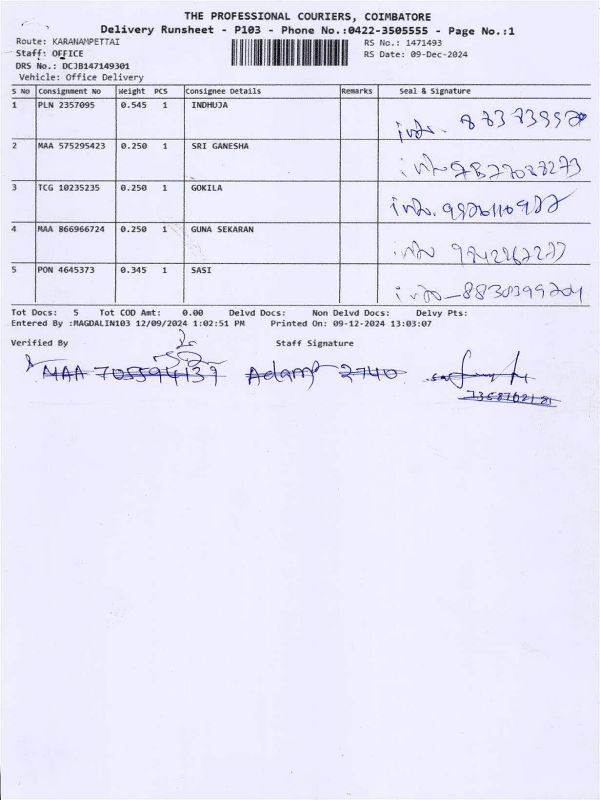 THE PROFESSIONAL COURIERS, COIMBATORE
Delivery Runsheet - P103 - Phone No.:0422-3505555 - Page No.:1
Route: KARANAMPETTAI RS No.: 1471493
Staff: OFFICE RS Date: 09-Dec-2024
DRS No.: DCJB147149301
Vehicle: Office Delivery
S No Consignment No Weight PCS Consignee Details Remarks Seal & Signature
1 PLN 2357095 0.545 1 INDHUJA
2 MAA 575295423 0.250 1 SRI GANESHA
3 TCG 10235235 0.250 1 GOKILA
4 MAA 866966724 0.250 1 GUNA SEKARAN
5 PON 4645373 0.345 1 SASI
Tot Docs: 5 Tot COD Amt: 0.00 Delvd Docs: Non Delvd Docs: Delvy Pts:
Entered By :MAGDALIN103 12/09/2024 1:02:51 PM Printed On: 09-12-2024 13:03:07
Verified By Staff Signature
MAA 705594139 Adamp 2740